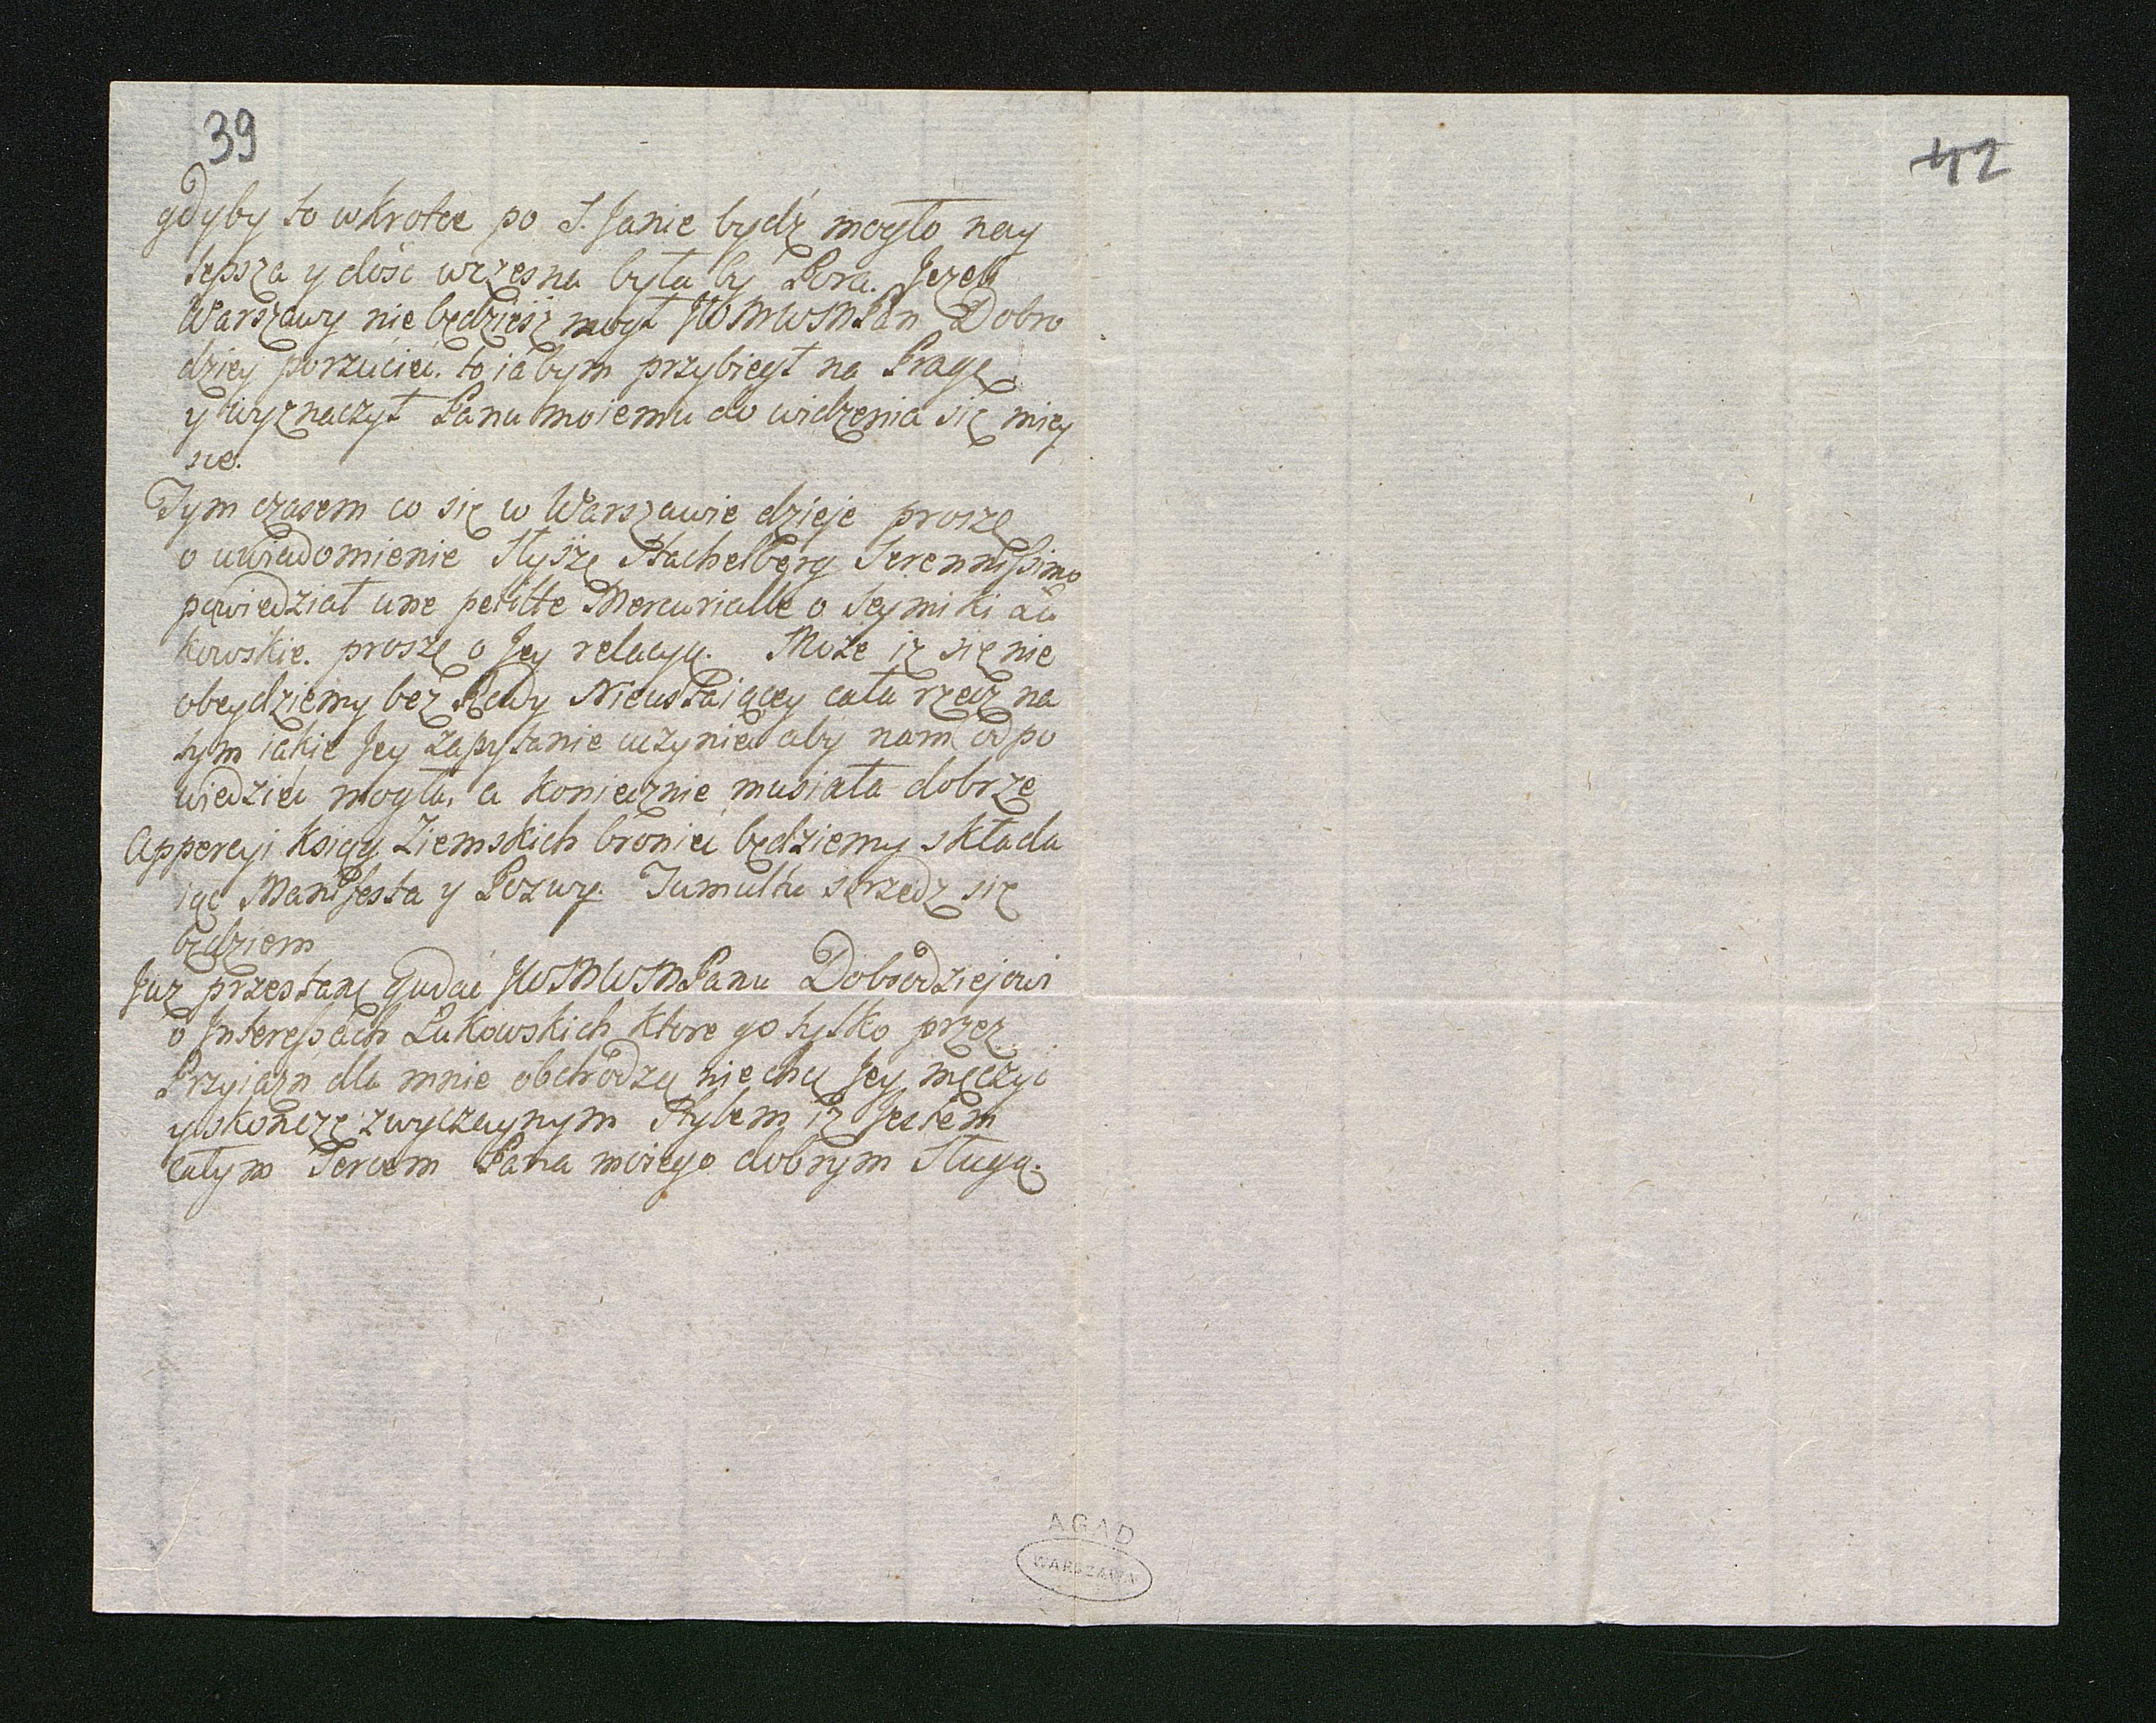 39
42
gdyby to wkrotce po S. Janie bydź mogło nay
lepsza y dość wczesna była by Pora. Jezeli
Warszawy nie będziesz mogł JWMWMPan Dobro
dziey porzucić. to ia bym przybiegł na Pragę
y wyznaczył Panu moiemu do widzenia się miey
sce.
Tym czasem co się w Warszawie dzieje proszę
o uwiadomienie Słyszę Stachelberg Serennissimo
powiedział une petitte Mercurialle o Seymiki Łu
kowskie. proszę o Jey relacyą. Może iz się nie
obeydziemy bez Rady Nieustaiącey cała rzecz na
tym iakie Jey zapytanie uczynić aby nam odpo
wiedzieć mogła, a koniecznie musiała dobrze
Appercyi Ksiąg Ziemskich bronić będziemy składa
iąc Manifesta y Pozwy. Tumultu strzedz się
będziem
Juz przestanę gadać JWMWMPanu Dobrodziejowi
o Interessach Łukowskich ktore go tylko przez
Przyiazn dla mnie obchodzą nie chcę Jey męczyć
y skonczę zwyczaynym Stylem iz Jestem
całym Sercem Pana moiego dobrym Sługą.
AGAD
WARSZAWA